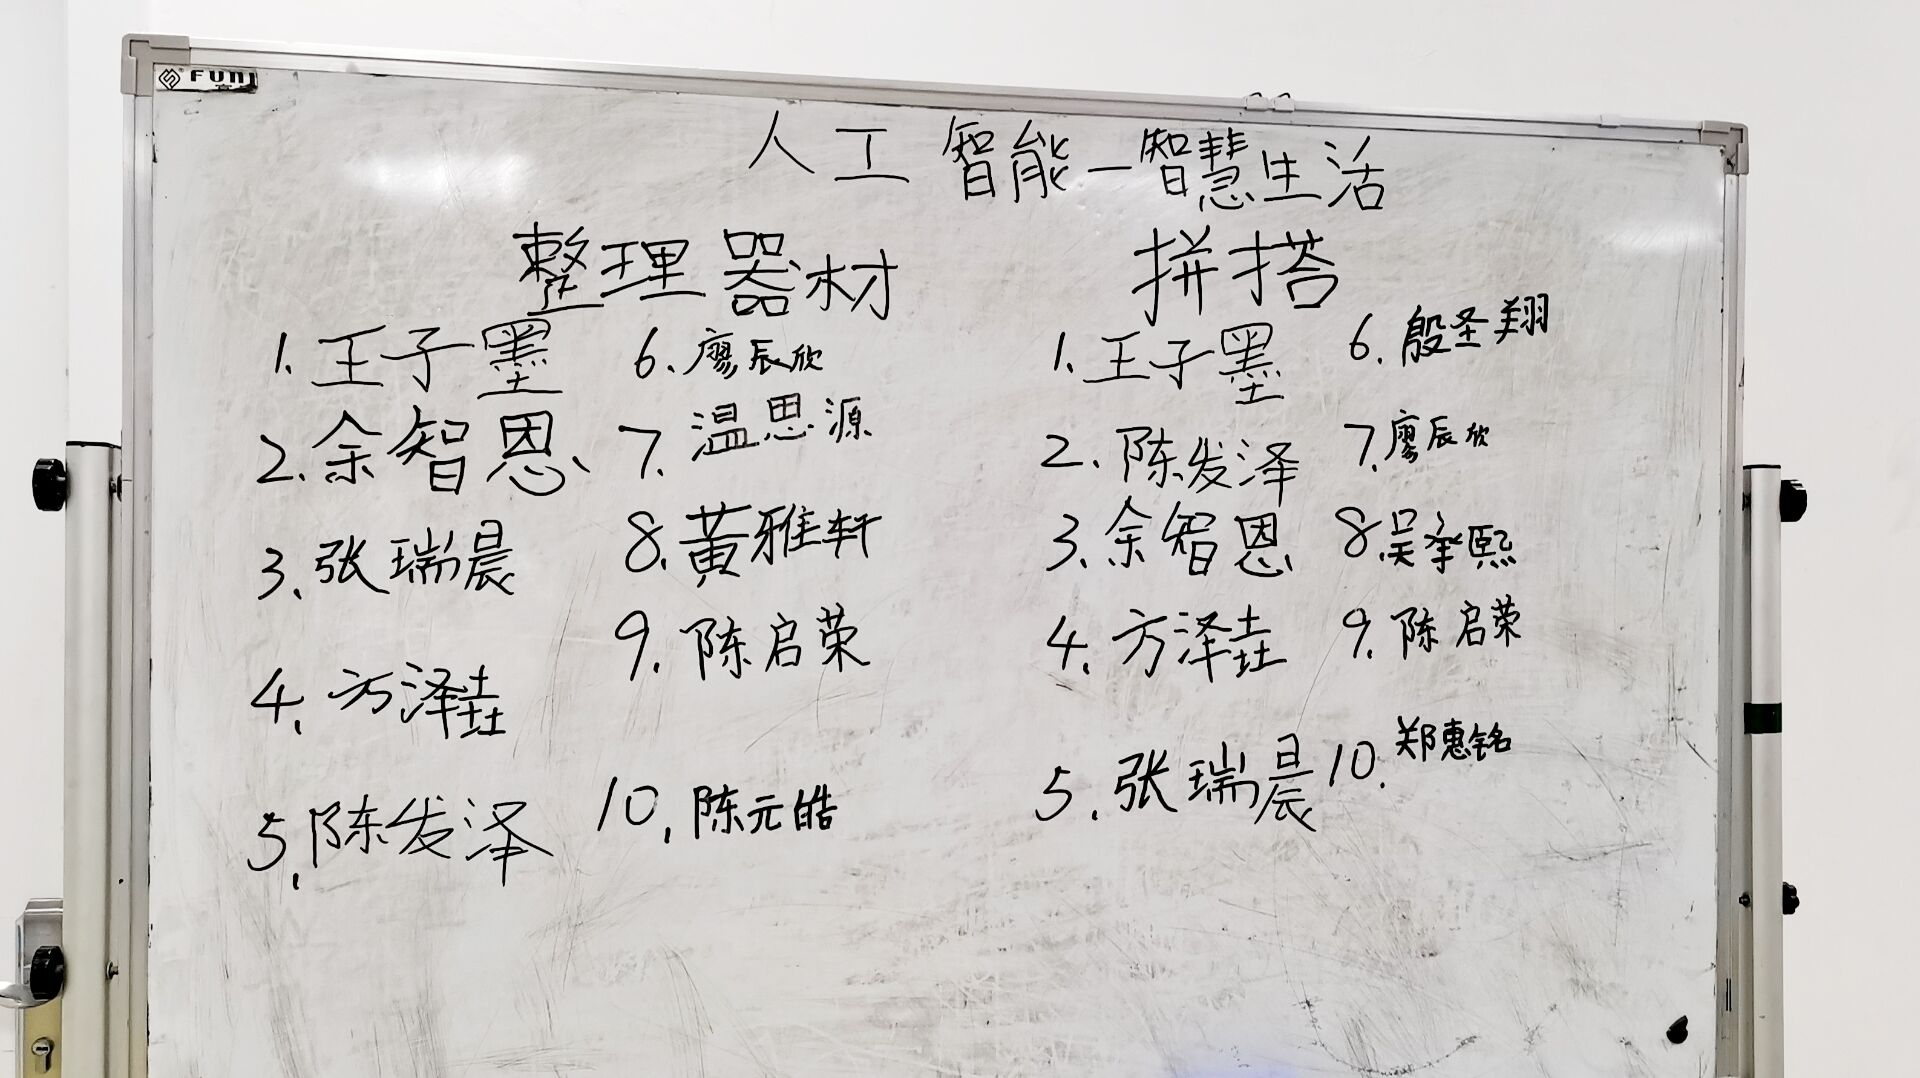 FUNJ
人工智能-智慧生活
整理器材
1.王子墨
2.余智恩
3.张瑞晨
4.方泽垚
5.陈发泽
6.廖辰欣
7.温思源
8.黄雅轩
9.陈启荣
10.陈元皓
拼搭
1.王子墨
2.陈发泽
3.余智恩
4.方泽垚
5.张瑞晨
6.殷圣翔
7.廖辰欣
8.吴承熙
9.陈启荣
10.郑惠铭